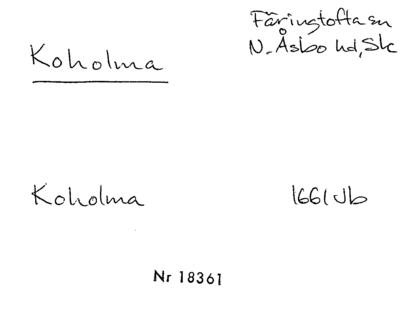 Koholma
Färingtofta sn
N. Åsbo hd, Sk
Koholma 1661 Jb
Nr 18361